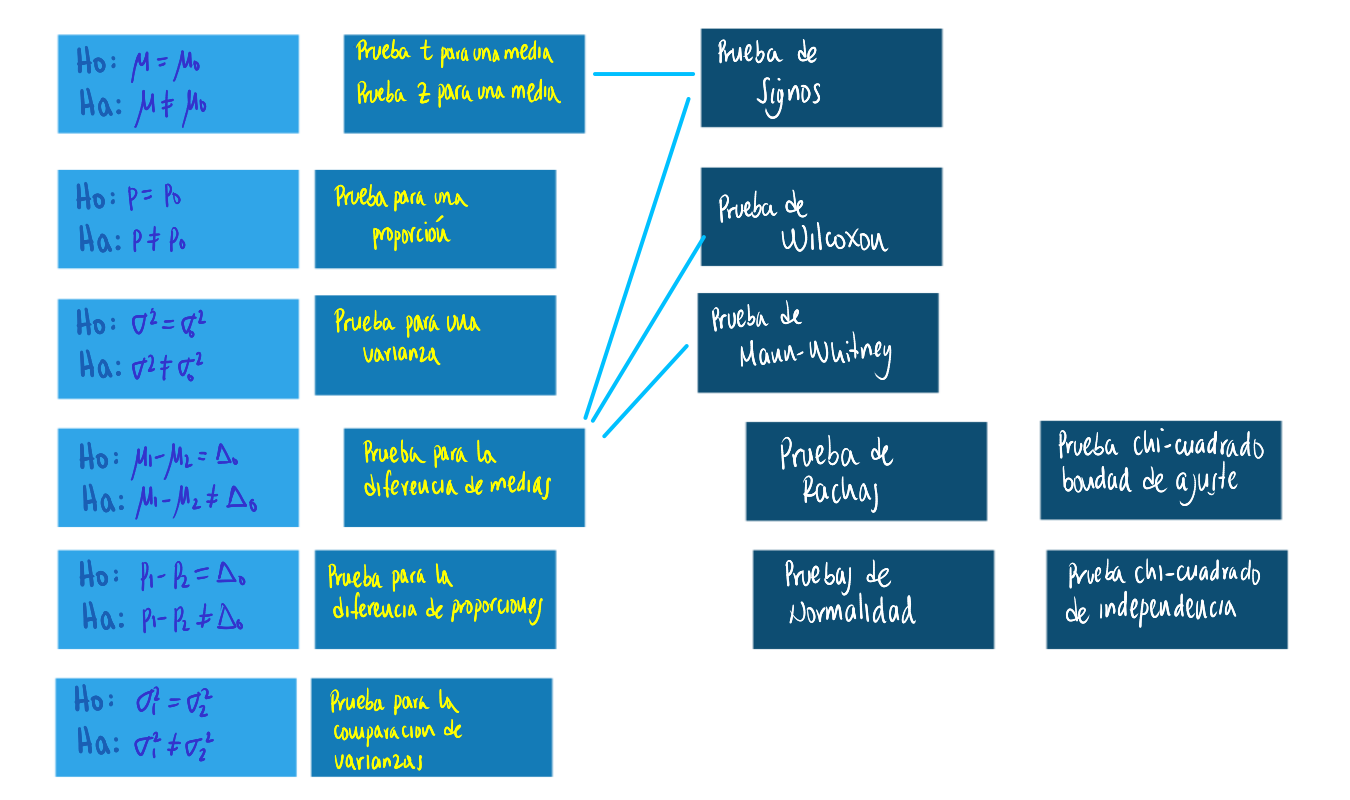 Ho: μ = μ₀
Ha: μ ≠ μ₀
Prueba t para una media
Prueba Z para una media
Prueba de
Signos
Ho: p = p₀
Ha: p ≠ p₀
Prueba para una
proporción
Prueba de
Wilcoxon
Ho: σ² = σ₀²
Ha: σ² ≠ σ₀²
Prueba para una
varianza
Prueba de
Mann-Whitney
Ho: μ₁ - μ₂ = Δ₀
Ha: μ₁ - μ₂ ≠ Δ₀
Prueba para la
diferencia de medias
Prueba de
Rachas
Prueba chi-cuadrado
bondad de ajuste
Ho: p₁ - p₂ = Δ₀
Ha: p₁ - p₂ ≠ Δ₀
Prueba para la
diferencia de proporciones
Pruebas de
Normalidad
Prueba chi-cuadrado
de independencia
Ho: σ₁² = σ₂²
Ha: σ₁² ≠ σ₂²
Prueba para la
comparacion de
varianzas